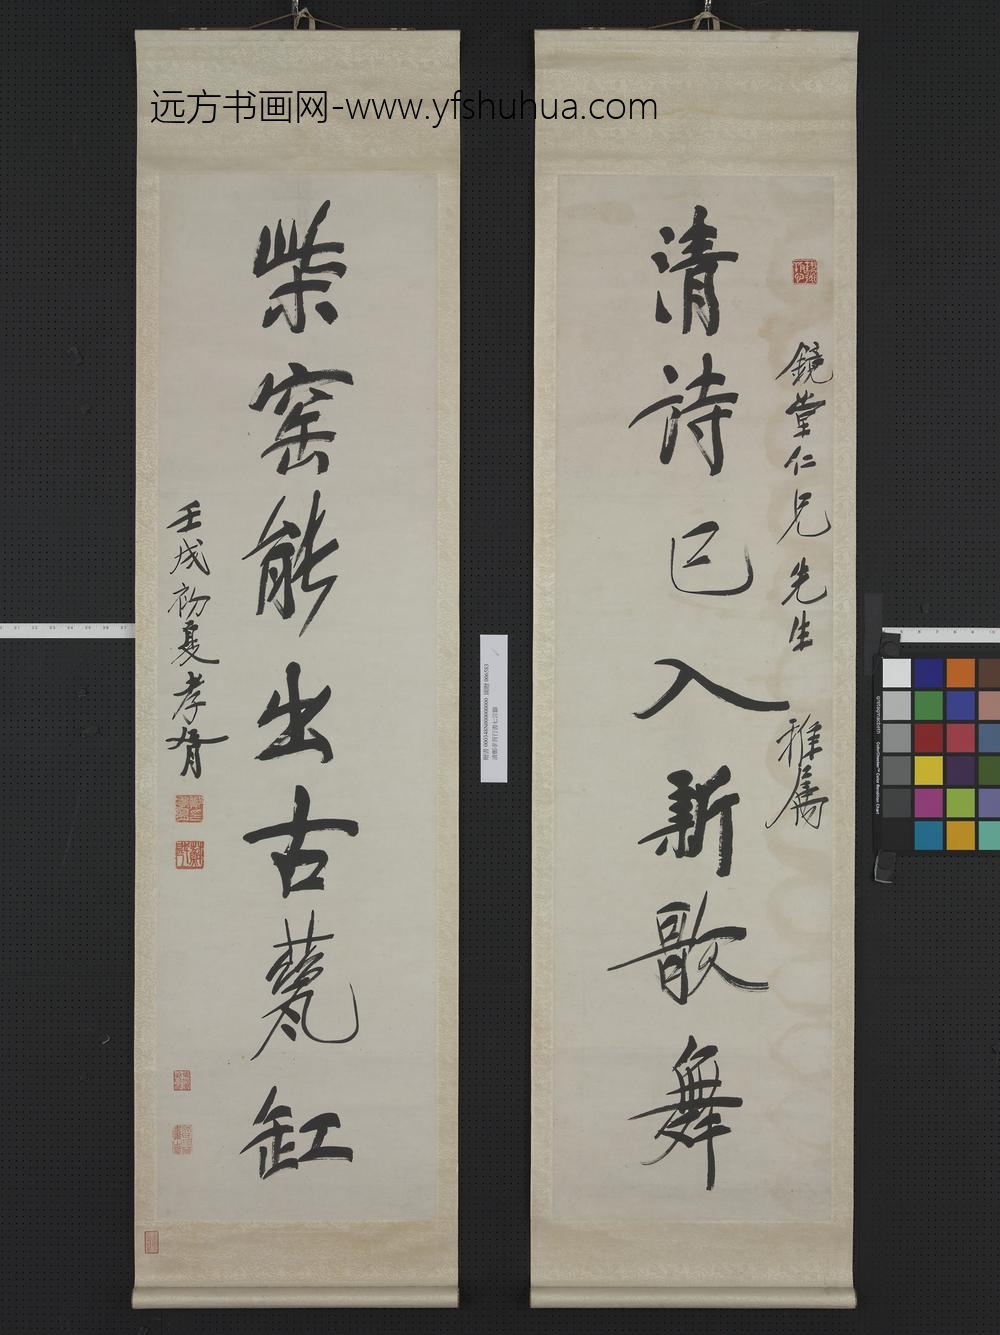 远方书画网-www.yfshuhua.com
鏡堂仁兄先生 雅屬
清詩已入新歌舞
柴窑能出古甆缸
壬戌初夏孝胥